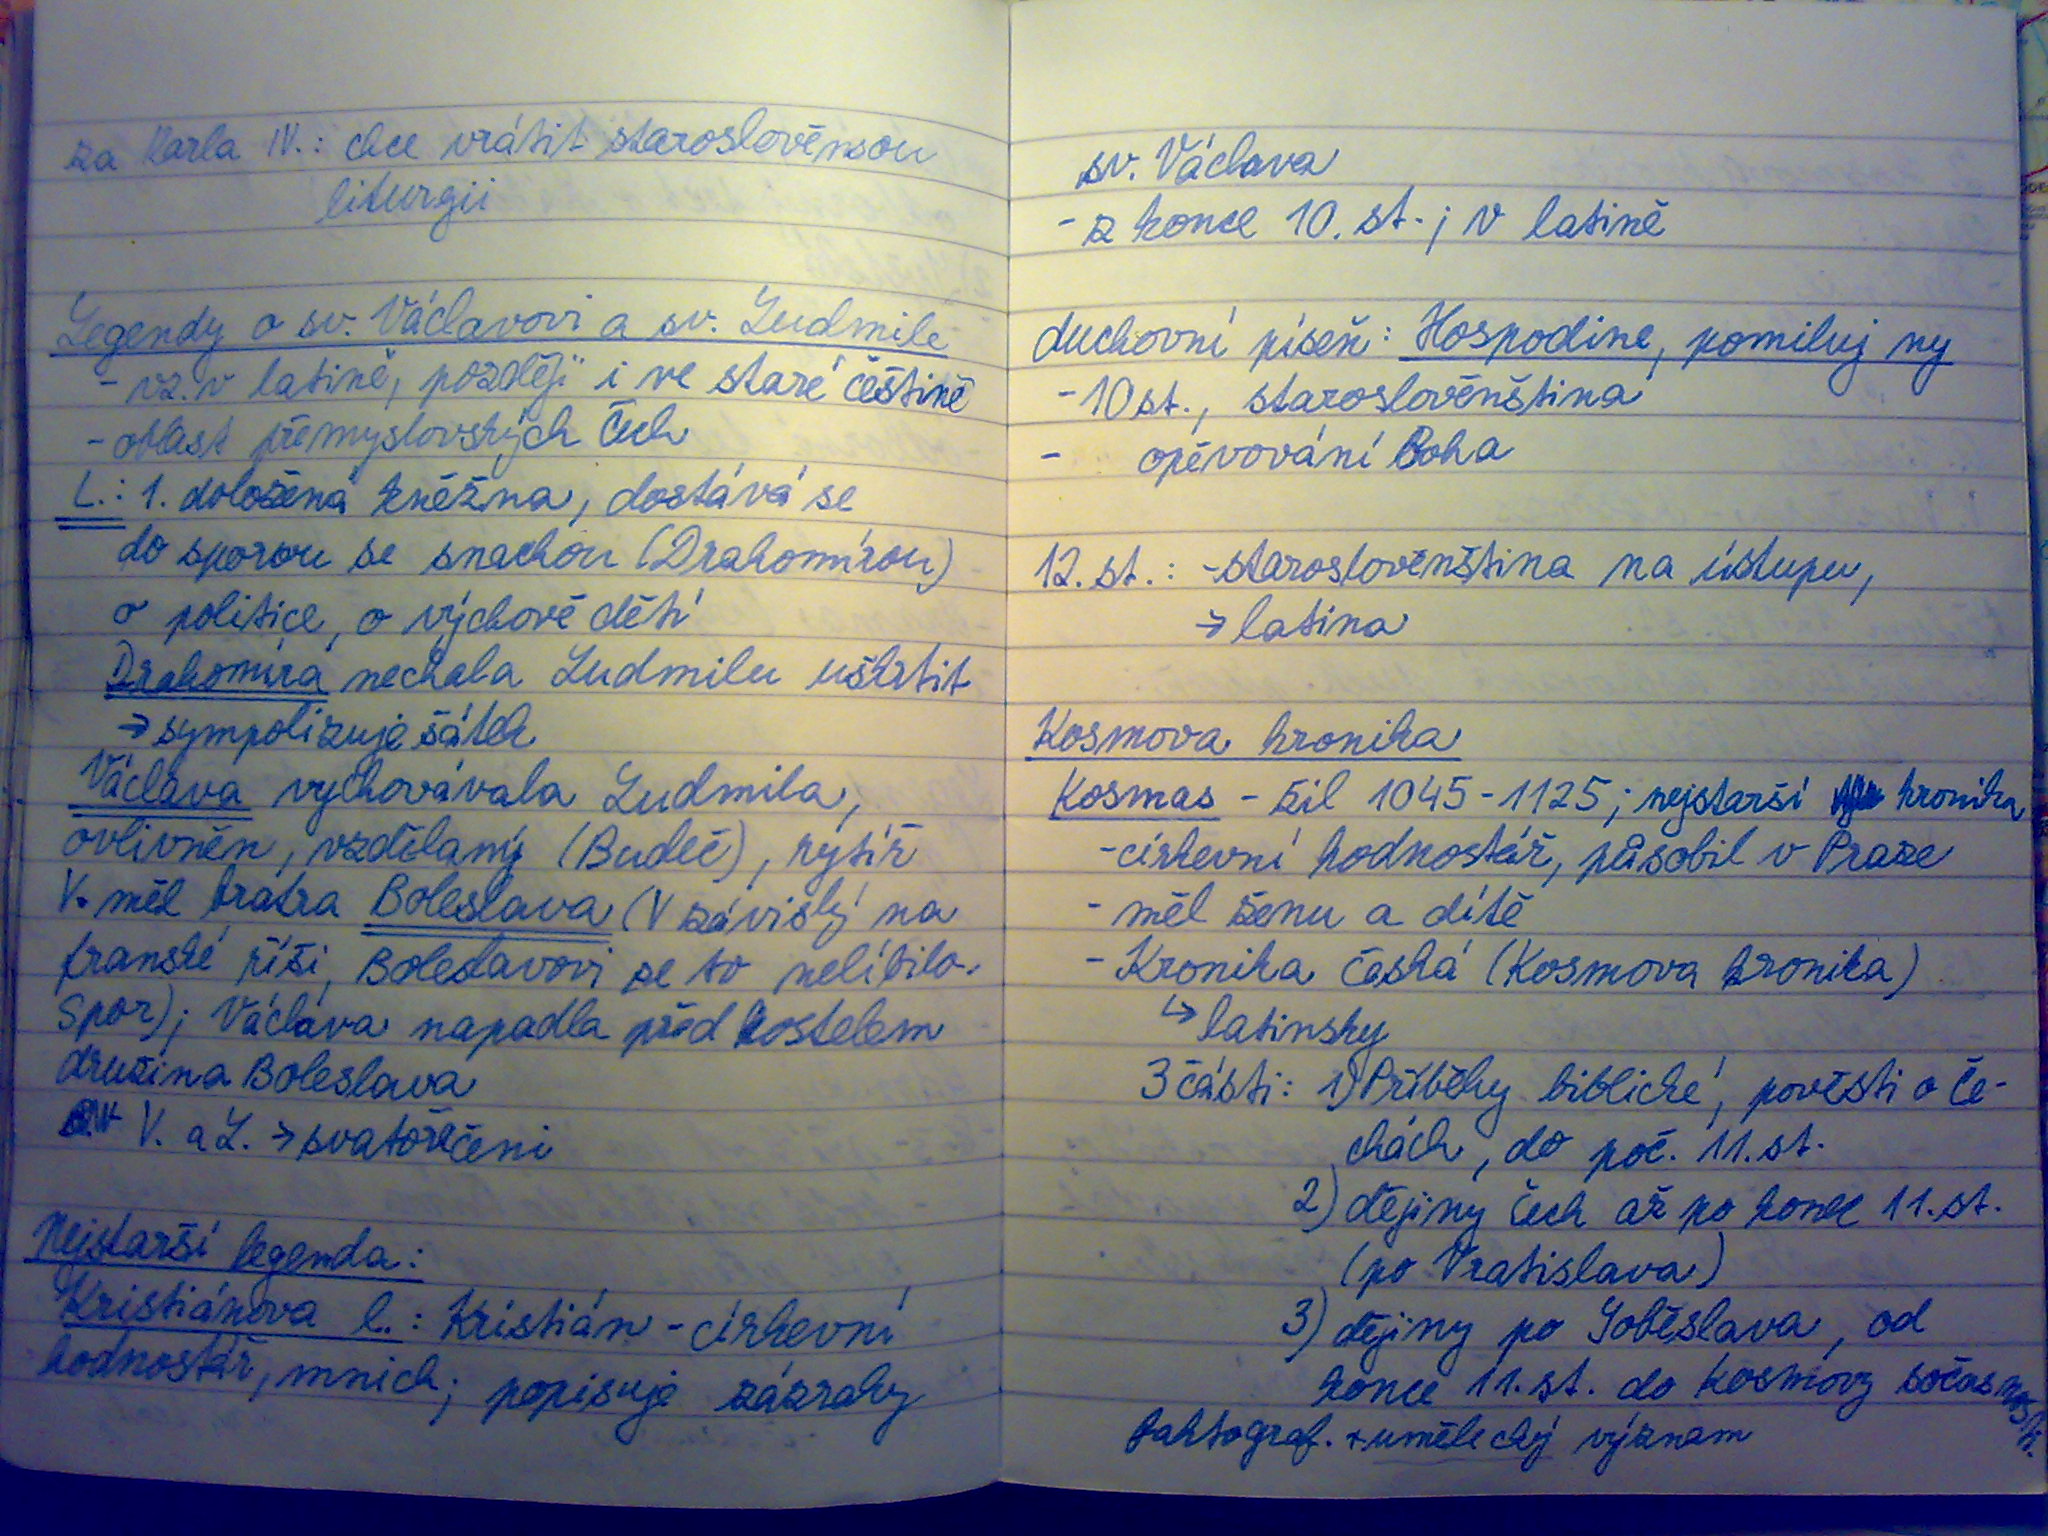 za Karla IV.: chce vrátit staroslověnsou
liturgii
Legendy o sv. Václavovi a sv. Ludmile
- vz. v latině, později i ve staré češtině
- oblast přemyslovských Čech
L.: 1. doložená kněžna, dostává se
do sporou se snachou (Drahomírou)
o politice, o výchově dětí
Drahomíra nechala Ludmilu uškrtit
→ sympolizuje šátek
Václava vychovávala Ludmila,
ovlivněn, vzdělaný (Budeč), rytíř
V. měl bratra Boleslava (V závislý na
franské říši, Boleslavovi se to nelíbilo.
Spor); Václava napadla před kostelem
družina Boleslava
V. a L. → svatořečeni
Nejstarší legenda:
Kristiánova l.: Kristián - církevní
hodnostář, mnich; popisuje zázraky
sv. Václava
- z konce 10. st.; v latině
duchovní píseň: Hospodine, pomiluj ny
- 10 st., staroslověnština
- opěvování Boha
12. st.: - staroslověnština na ústupu,
→ latina
Kosmova kronika
Kosmas - žil 1045-1125; nejstarší kronika
- církevní hodnostář, působil v Praze
- měl ženu a dítě
- Kronika česká (Kosmova kronika)
↳ latinsky
3 části: 1) Příběhy biblické, pověsti o Če-
chách, do poč. 11. st.
2) dějiny Čech až po konec 11. st.
(po Vratislava)
3) dějiny po Soběslava, od
konce 11. st. do Kosmovy sočasnosti.
faktograf. + umělecký význam